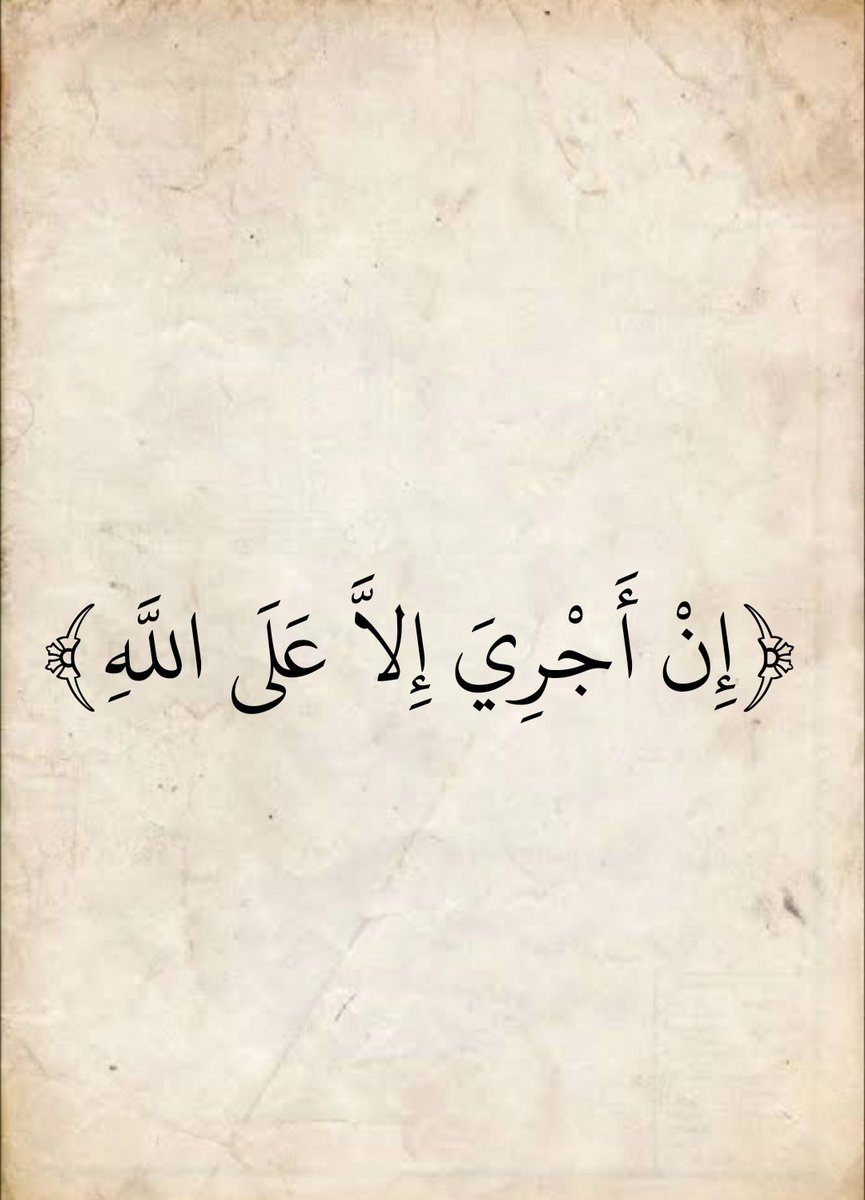 ﴿إِنْ أَجْرِيَ إِلاَّ عَلَى اللَّهِ﴾